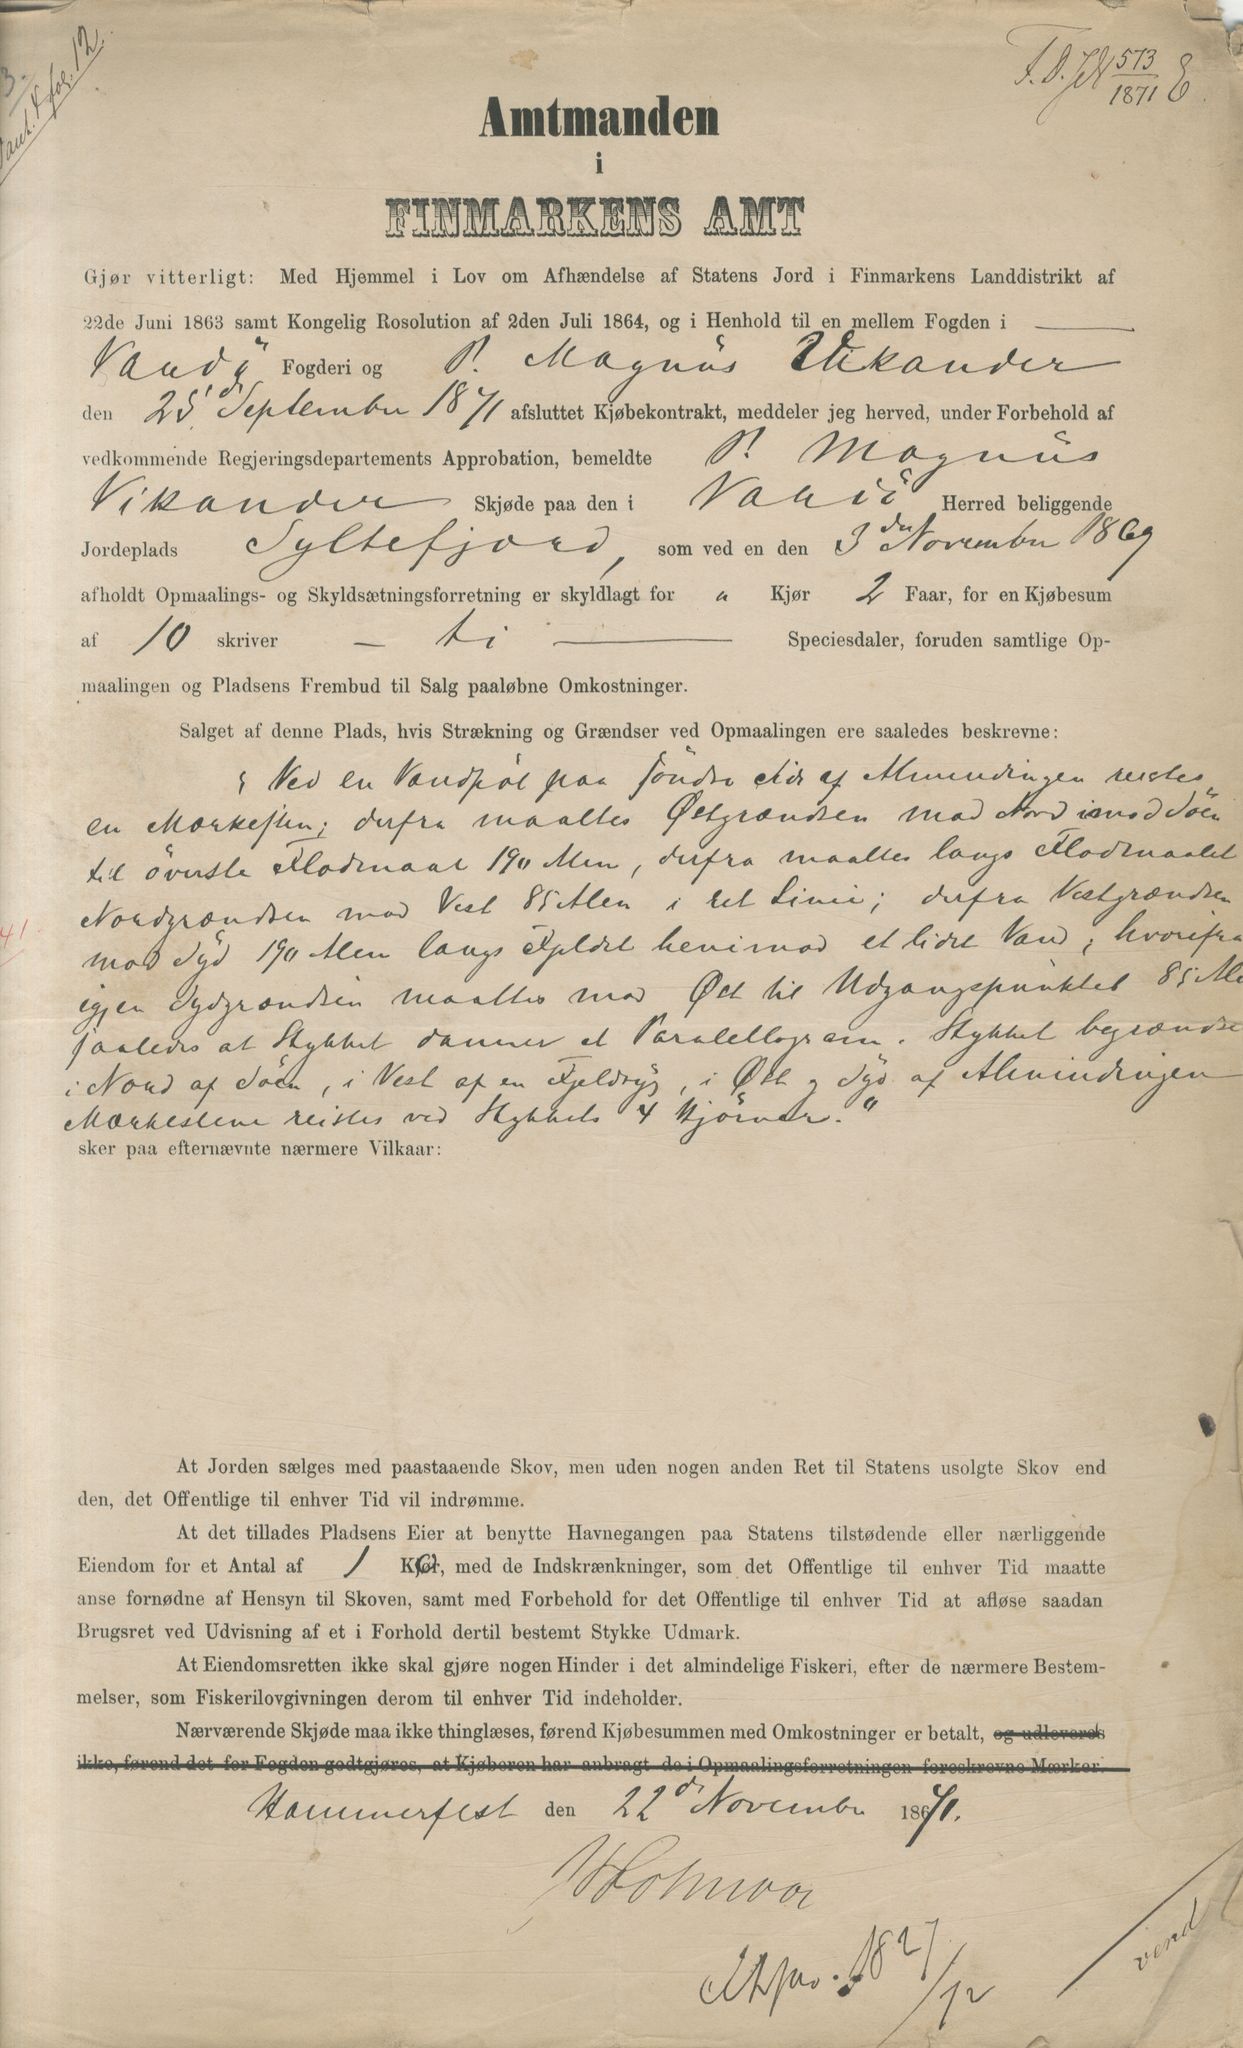 3.
Pant. 4 fol. 12.
F. D. J. N 573/1871 E.
Amtmanden
i
FINMARKENS AMT
Gjør vitterligt: Med Hjemmel i Lov om Afhændelse af Statens Jord i Finmarkens Landdistrikt af
22de Juni 1863 samt Kongelig Rosolution af 2den Juli 1864, og i Henhold til en mellem Fogden i
Vardö Fogderi og P. Magnus Vikander
den 25de September 1871 afsluttet Kjøbekontrakt, meddeler jeg herved, under Forbehold af
vedkommende Regjeringsdepartements Approbation, bemeldte P. Magnus
Vikander Skjøde paa den i Vardö Herred beliggende
Jordeplads Syltefjord, som ved en den 3den November 1869
afholdt Opmaalings- og Skyldsætningsforretning er skyldlagt for " Kjør 2 Faar, for en Kjøbesum
af 10 skriver – ti – Speciesdaler, foruden samtlige Op-
maalingen og Pladsens Frembud til Salg paaløbne Omkostninger.
Salget af denne Plads, hvis Strækning og Grændser ved Opmaalingen ere saaledes beskrevne:
"Ved en Vandpöl paa söndre Side af Almendingen reistes
en Markesten; derfra maaltes Østgrændsen mod Nord imod Söen
til överste Flodmaal 190 Alen, derfra maaltes langs Flodmaalet
Nordgrændsen mod Vest 85 Alen i ret Linie; derfra Vestgrændsen
mod Syd 190 Alen langs Fjeldet henimod et lidet Vand, hvorifra
igjen Sydgrændsen maaltes mod Øst til Udgangspunktet 85 Ale
saaledes at Stykket danner et Paralellogram. Stykket begrændse
i Nord af Söen, i Vest af en Fjeldryg, i Øst og Syd af Almindingen
Markestene reistes ved Stykkets 4 Hjörner."
41
sker paa efternævnte nærmere Vilkaar:
At Jorden sælges med paastaaende Skov, men uden nogen anden Ret til Statens usolgte Skov end
den, det Offentlige til enhver Tid vil indrømme.
At det tillades Pladsens Eier at benytte Havnegangen paa Statens tilstødende eller nærliggende
Eiendom for et Antal af 1 Ko, med de Indskrænkninger, som det Offentlige til enhver Tid maatte
anse fornødne af Hensyn til Skoven, samt med Forbehold for det Offentlige til enhver Tid at afløse saadan
Brugsret ved Udvisning af et i Forhold dertil bestemt Stykke Udmark.
At Eiendomsretten ikke skal gjøre nogen Hinder i det almindelige Fiskeri, efter de nærmere Bestem-
melser, som Fiskerilovgivningen derom til enhver Tid indeholder.
Nærværende Skjøde maa ikke thinglæses, førend Kjøbesummen med Omkostninger er betalt, og udleveres
ikke, førend det for Fogden godtgjøres, at Kjøberen har anbragt de i Opmaalingsforretningen foreskrevne Mærker.
Hammerfest den 22de November 1871.
Holmboe
vend